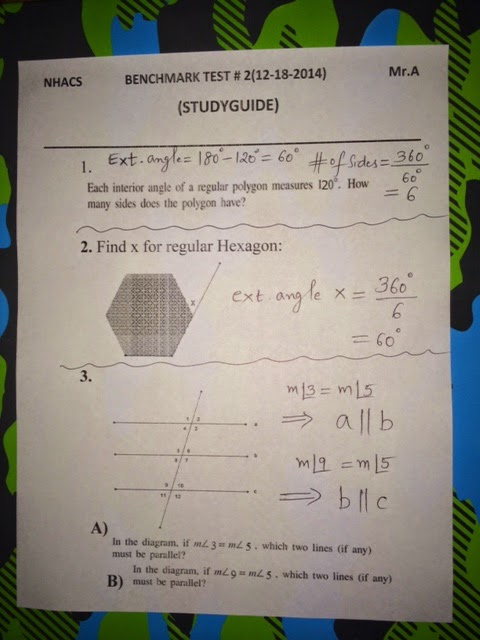 NHACS BENCHMARK TEST # 2(12-18-2014) Mr.A
(STUDYGUIDE)
1. Ext. angle = 180° - 120° = 60° # of Sides = 360°
60°
= 6
Each interior angle of a regular polygon measures 120°. How
many sides does the polygon have?
2. Find x for regular Hexagon:
x
ext. angle x = 360°
6
= 60°
3.
m∠3 = m∠5
⟹ a ∥ b
m∠9 = m∠5
⟹ b ∥ c
1 2
4 3 a
5 6
8 7 b
9 10
11 12 c
A)
In the diagram, if m∠3 = m∠5 , which two lines (if any)
must be parallel?
B)
In the diagram, if m∠9 = m∠5 , which two lines (if any)
must be parallel?